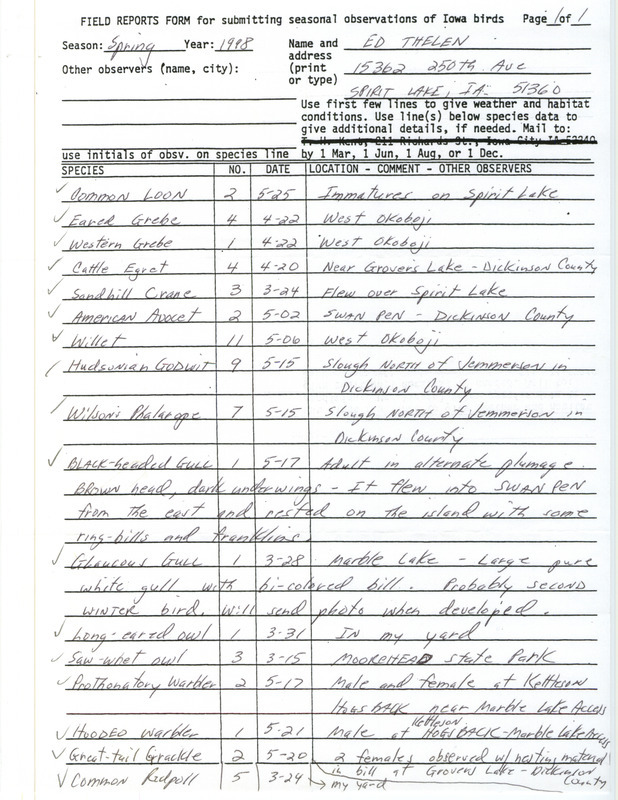 FIELD REPORTS FORM for submitting seasonal observations of Iowa birds Page 1 of 1
Season: Spring Year: 1998 Name and ED THELEN
address
Other observers (name, city): (print 15362 250th Ave
or type)
SPIRIT LAKE, IA. 51360
Use first few lines to give weather and habitat
conditions. Use line(s) below species data to
give additional details, if needed. Mail to:
T. H. Kent, 211 Richards St., Iowa City IA 52240
use initials of obsv. on species line by 1 Mar, 1 Jun, 1 Aug, or 1 Dec.
SPECIES NO. DATE LOCATION - COMMENT - OTHER OBSERVERS
✓ Common LOON 2 5-25 Immatures on Spirit Lake
✓ Eared Grebe 4 4-22 West Okoboji
✓ Western Grebe 1 4-22 West Okoboji
✓ Cattle Egret 4 4-20 Near Grovers Lake - Dickinson County
✓ Sandhill Crane 3 3-24 Flew over Spirit Lake
✓ American Avocet 2 5-02 SWAN PEN - Dickinson County
✓ Willet 11 5-06 West Okoboji
/ Hudsonian GODWIT 9 5-15 Slough NORTH of Jemmerson in
Dickinson County
/ Wilson's Phalarope 7 5-15 Slough NORTH of Jemmerson in
Dickinson County
✓ BLACK-headed GULL 1 5-17 Adult in alternate plumage.
BROWN head, dark underwings - It flew into SWAN PEN
from the east and rested on the island with some
ring-bills and franklins.
✓ Glaucous Gull 1 3-28 Marble Lake - Large pure
white gull with bi-colored bill. Probably second
WINTER bird. Will send photo when developed.
✓ Long-eared owl 1 3-31 IN my yard
✓ Saw-whet owl 3 3-15 MOOREHEAD state Park
✓ Prothonatory Warbler 2 5-17 Male and female at Kettleson
HOGS BACK near Marble Lake Access
✓ HOODED Warbler 1 5-21 Male at Kettleson HOGSBACK-Marble Lake Access
✓ Great-tail Grackle 2 5-20 2 females observed w/ nesting material
in bill at Grovers Lake - Dickinson County
✓ Common Redpoll 5 3-24 → my yard